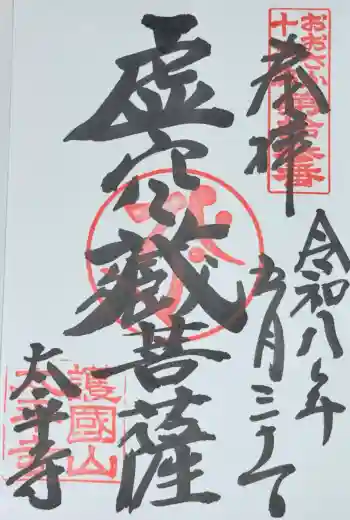 奉拝
おおさか
十
番
令和八年
五月三十一日
虚空蔵菩薩
護國山
太平寺
太平寺